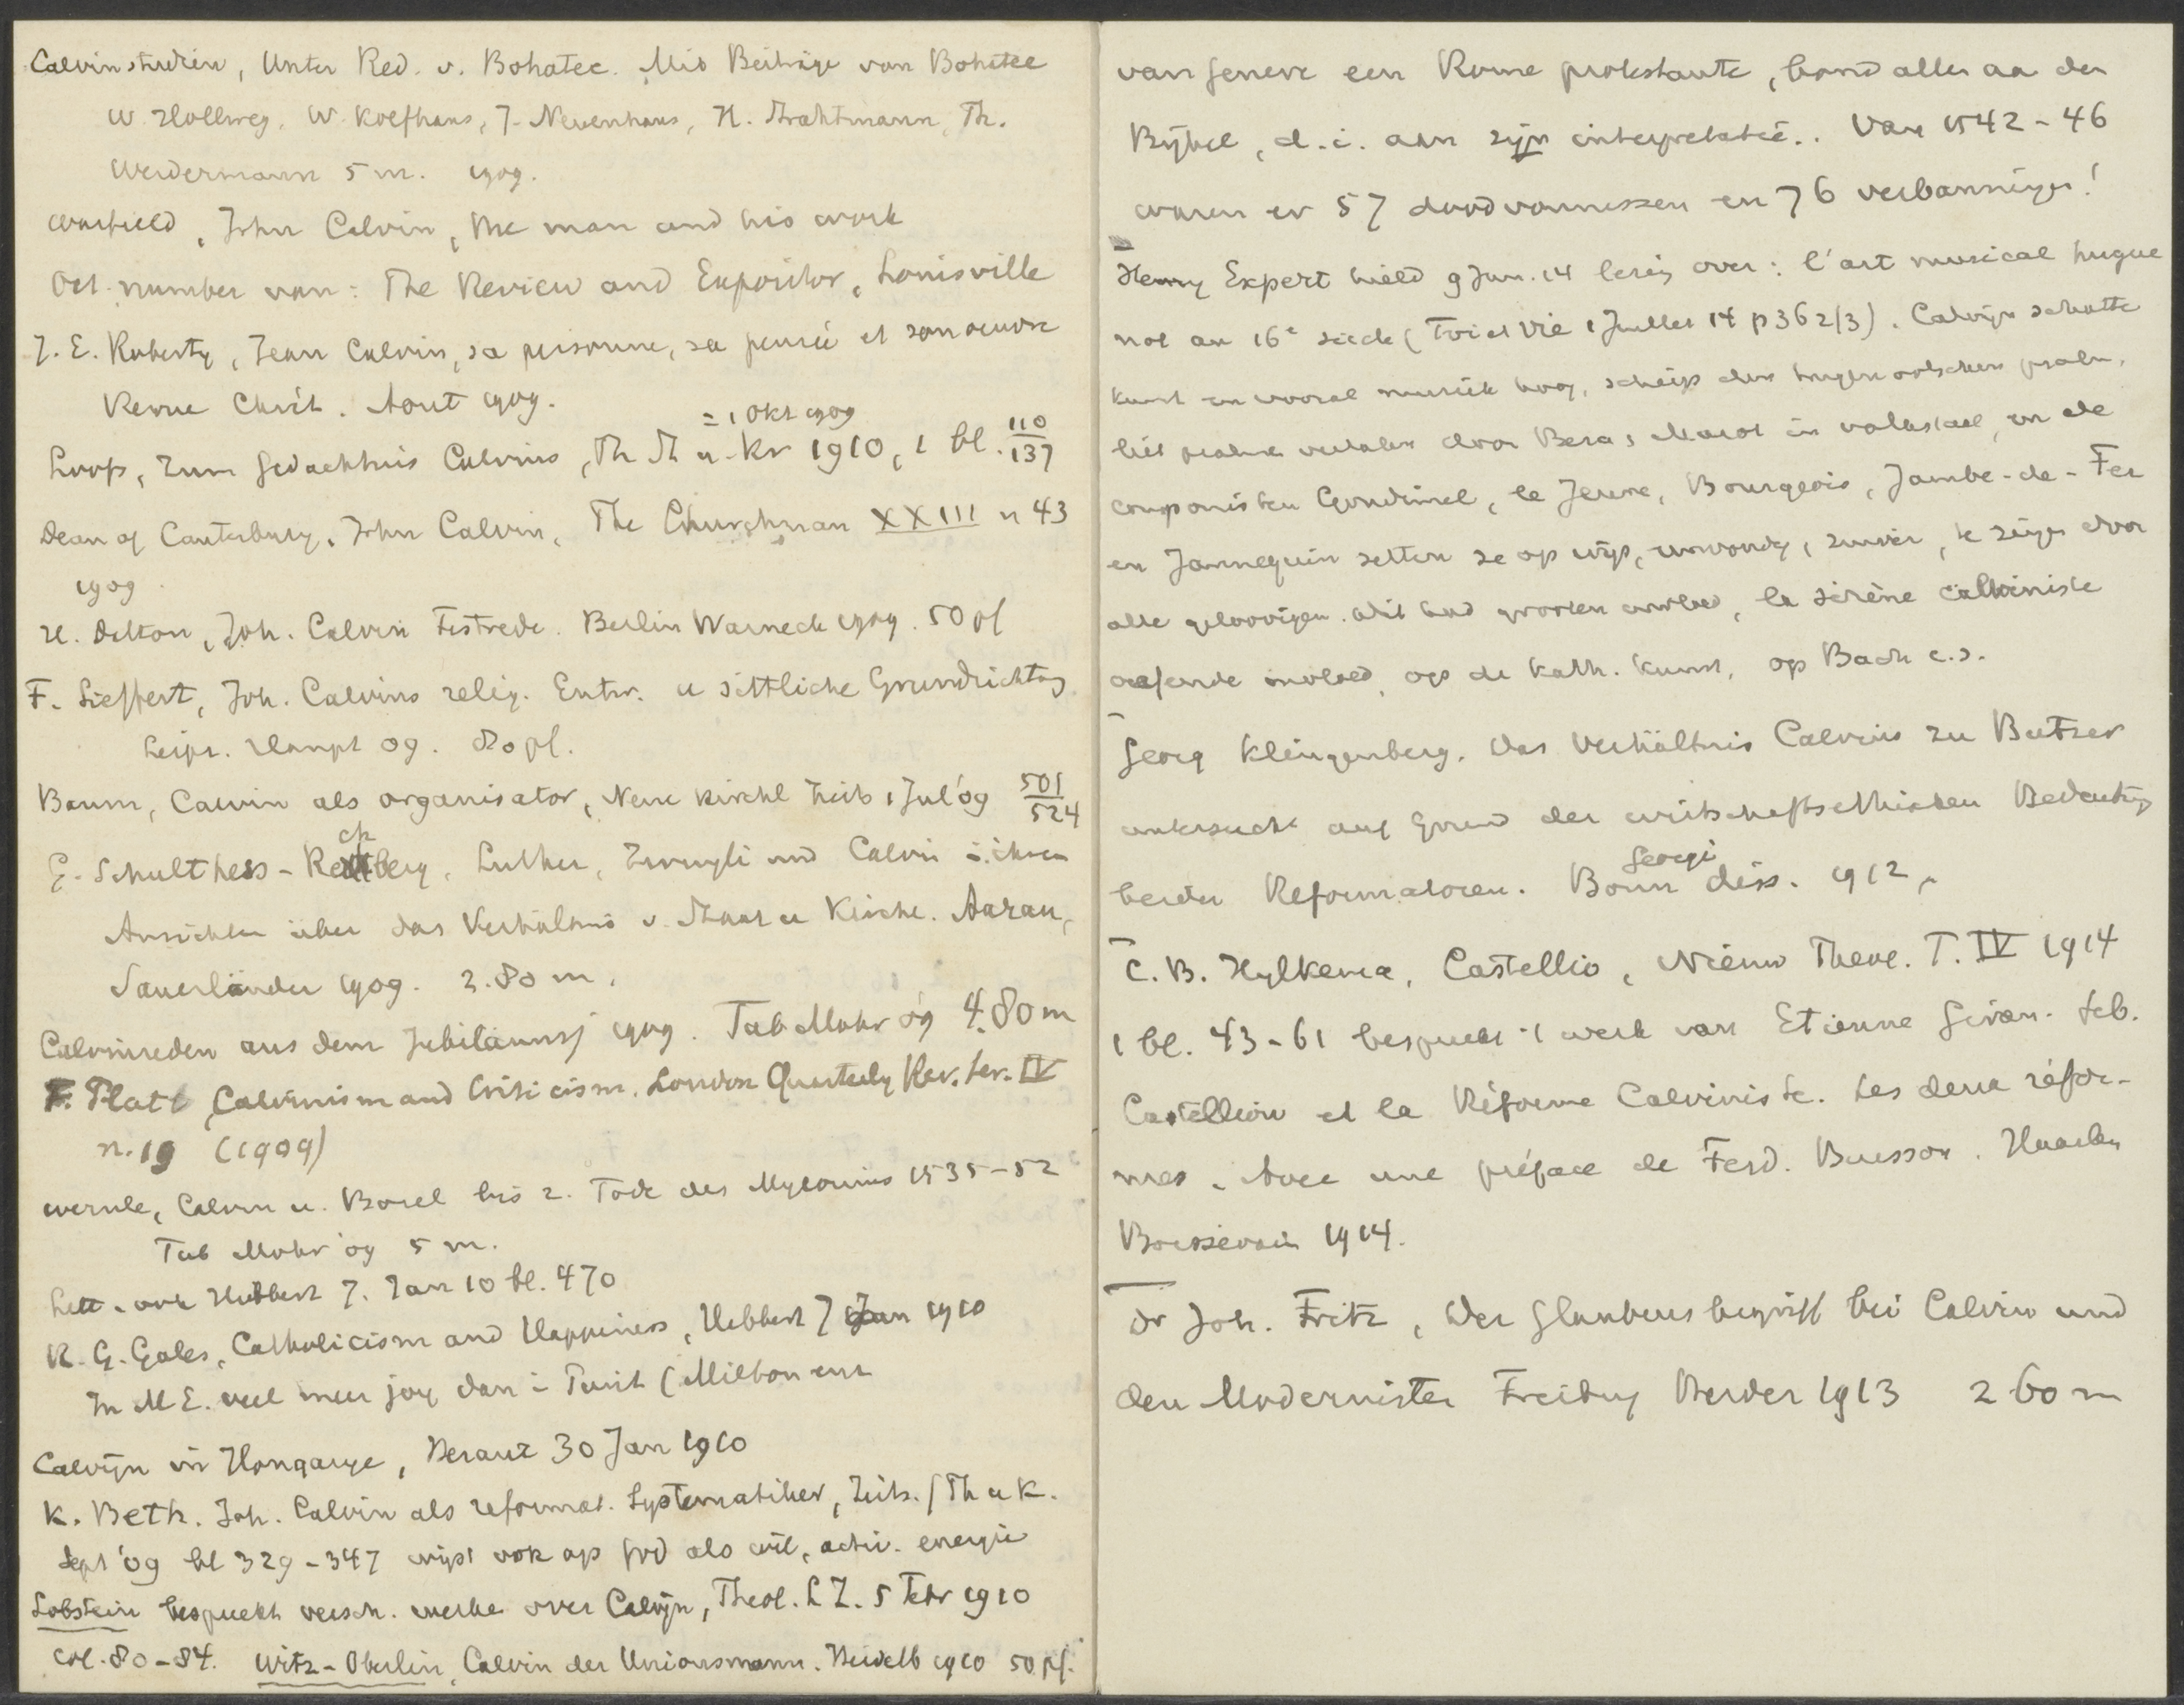 Calvinstudien, Unter Red. v. Bohatec. Mit Beiträge von Bohatec
W. Hollweg, W. Kolfhaus, J. Nevenhaus, H. Strahtmann, Th.
Werdermann 5 m. 1909.
Warfield, John Calvin, the man and his work
Oct. number van: The Review and Expositor, Louisville
J. E. Roberty, Jean Calvin, sa personne, sa pensée et son oeuvre
Revue Chrét. Aout 1909.
= 1 Okt 1909
Loofs, Zum Gedachtnis Calvins, Th St u. Kr 1910, 1 bl. 110/137
Dean of Canterbury, John Calvin, The Churchman XXIII n 43
1909
H. Dalton, Joh. Calvin Festrede. Berlin Warneck 1909. 50 pf
F. Sieffert, Joh. Calvins relig. Entw. u sittliche Grundrichtng
Leipz. Haupt 09. 80 pf.
Baum, Calvin als organisator, Neue kirchl Zeits, Jul '09 501/524
G. Schulthess-Rechberg, Luther, Zwingli und Calvin i. ihren
Ansichten über das Verhältnis v. Staat u Kirche. Aarau,
Sauerländer 1909. 3.80 m.
Calvinreden aus dem Jubiläumsj 1909. Tub Mohr 09 4.80 m
F. Platt, Calvinism and Criticism. London Quarterly Rev. Ser. IV
n. 19 (1909)
Wernle, Calvin u. Basel bis z. Tode des Myconius 1535-52
Tub Mohr '09 5 m.
Lett. ook Hibbert J. Jan 10 bl. 470
R. G. Gales, Catholicism and Happiness, Hibbert J Jan 1910
In M E. veel meer joy dan i Purit (Milton enz
Calvijn in Hongarye, Heraut 30 Jan 1910
K. Beth. Joh. Calvin als reformat. Systematiker, Zeits. f Th u K.
Sept '09 bl 329-347 wijst ook op God als wil, activ. energie
Lobstein bespreekt versch. werke over Calvijn, Theol. L Z. 5 Febr 1910
col. 80-84. Witz-Oberlin, Calvin der Unionsmann. Heidelb 1910 50 pf.
van Geneve een Rome protestante, bond alles aa den
Bijbel, d.i. aan zijn interpretatie.. Van 1542-46
waren er 57 doodvonnissen en 76 verbanningen!
Henry Expert hield 9 Jan. 14 lezing over: l'art musical hugue
not au 16e siècle (Foi et Vie 1 Juillet 14 p 362/3). Calvijn schatte
kunst en vooral muziek hoog, schiep den hugenootschen psalm,
liet psalmen vertalen door Beza, Marot in volkstaal, en de
componisten Goudimel, le Jeune, Bourgeois, Jambe-de-Fer
en Jannequin zetten ze op wijs, eenvoudig, zuiver, te zingen door
alle geloovigen. Dit had grooten invloed, la sirène calviniste
oefende invloed, op de kath. kunst, op Bach e.a.
Georg Klingenberg. Das Verhältnis Calvins zu Butzer
untersucht auf Grund der wirtschaftsethischen Bedeutung
Georgi
beider Reformatoren. Bonn diss. 1912.
C. B. Hylkema, Castellio, Nieuw Theol. T. IV 1914
1 bl. 43-61 bespreekt 't werk van Etienne Giran. Séb.
Castellion et la Réforme Calviniste. Les deux réfor-
mes. Avec une préface de Ferd. Buisson. Haarlem
Boissevain 1914.
Dr Joh. Fritz, Der Glaubensbegriff bei Calvin und
den Modernisten Freiburg Herder 1913 2 60 m